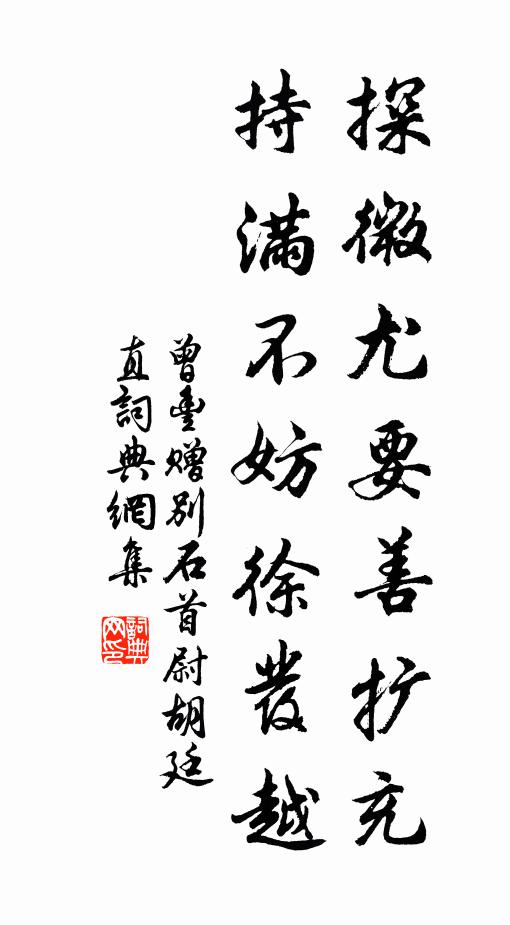 探微尤要善扩充
持满不妨徐發越
曾豊赠别石首尉胡廷
直詞典網集
詞典网印